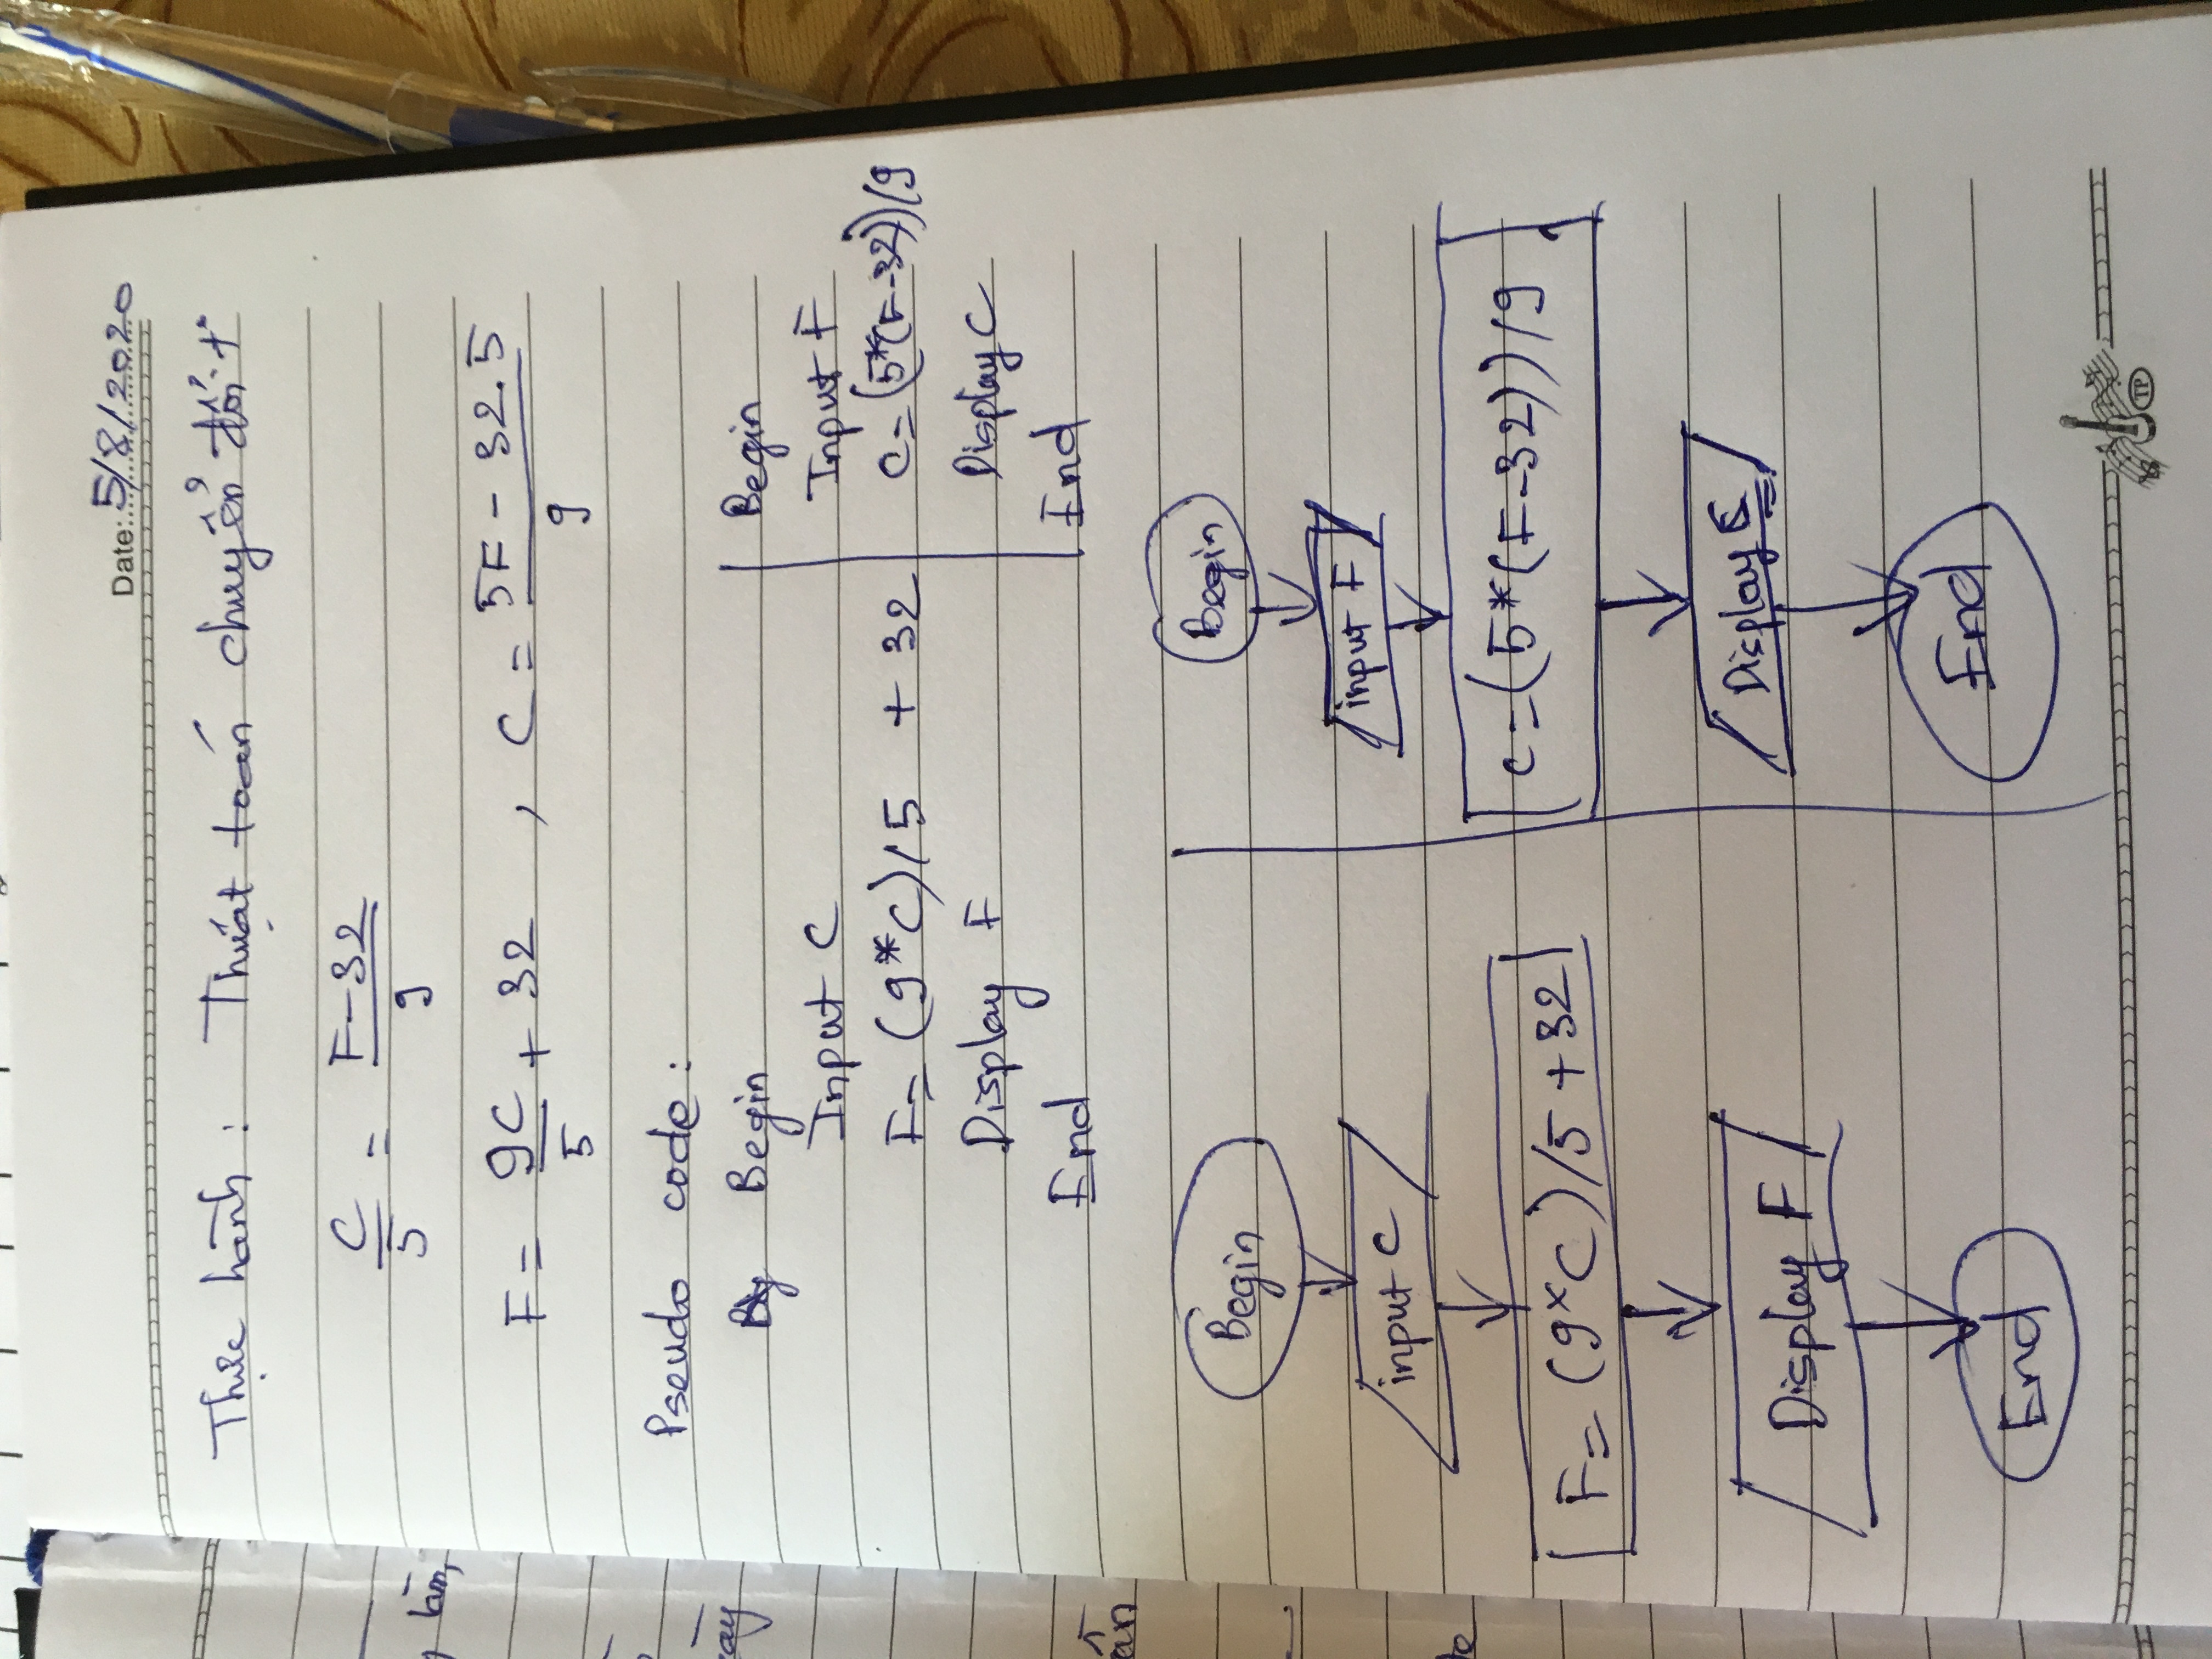 Date: 5/8/2020
Thực hành : Thuật toán chuyển đổi t°
C/5 = F-32/9
F = 9C/5 + 32 , C = 5F - 32.5/9
Pseudo code :
Begin
Input C
F = (9*C)/5 + 32
Display F
End
Begin
Input F
C = (5*(F-32))/9
Display C
End
Begin
input C
F = (9*C)/5 + 32
Display F
End
Begin
input F
C = (5*(F-32))/9
Display C
End
TP
làm,
ân